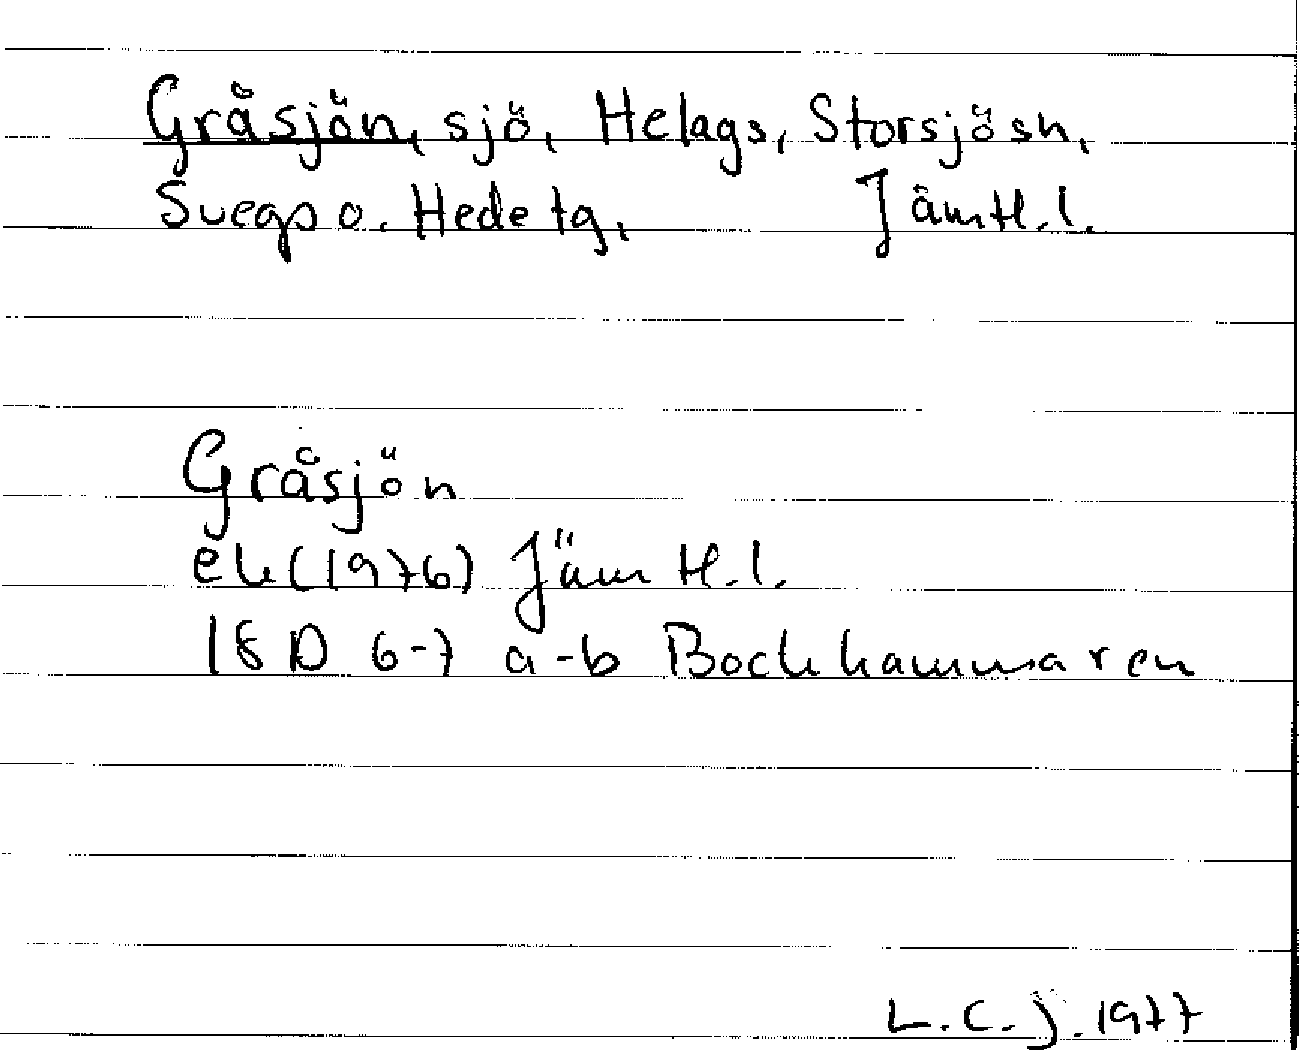 Gråsjön, sjö, Helags, Storsjösn,
Svegs o. Hede tg, Jämtl.l.
Gråsjön
ek(1976) Jämtl.l.
18D 6-7 a-b Bockhammaren
L.C.J. 1977